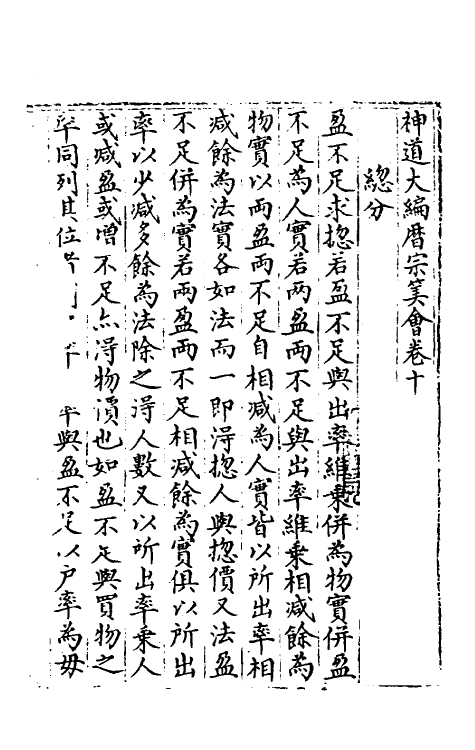 神道大編曆宗筭會卷十
總分
盈不足求揔若盈不足與出率維乗併為物實併盈
不足為人實若兩盈兩不足與出率維乗相减餘為
物實以兩盈兩不足自相减為人實皆以所出率相
减餘為法實各如法而一即淂揔人與揔價又法盈
不足併為實若兩盈兩不足相减餘為實俱以所出
率以少减多餘為法除之淂人數又以所出率乗人
或减盈或增不足亦淂物價也如盈不足與買物之
率同列其位 率與盈不足以戶率為毋